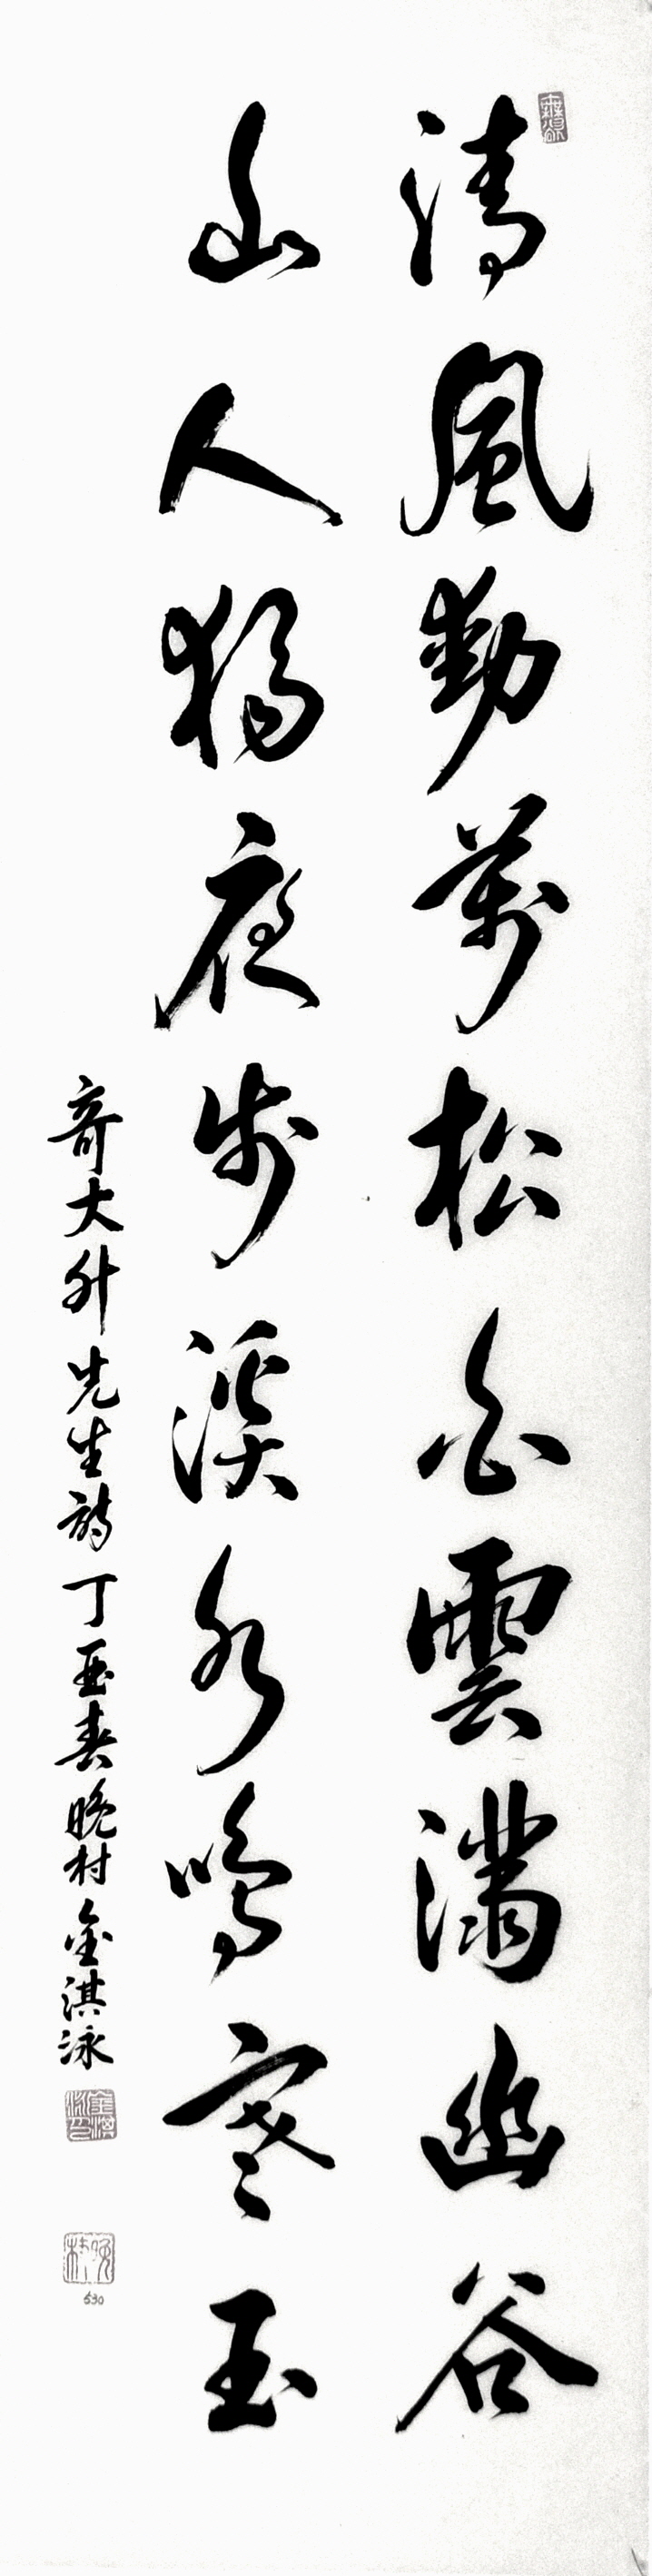 清風動萬松白雲滿幽谷
山人獨夜步溪水鳴寒玉
奇大升先生詩丁亜春晚村金淇泳
530